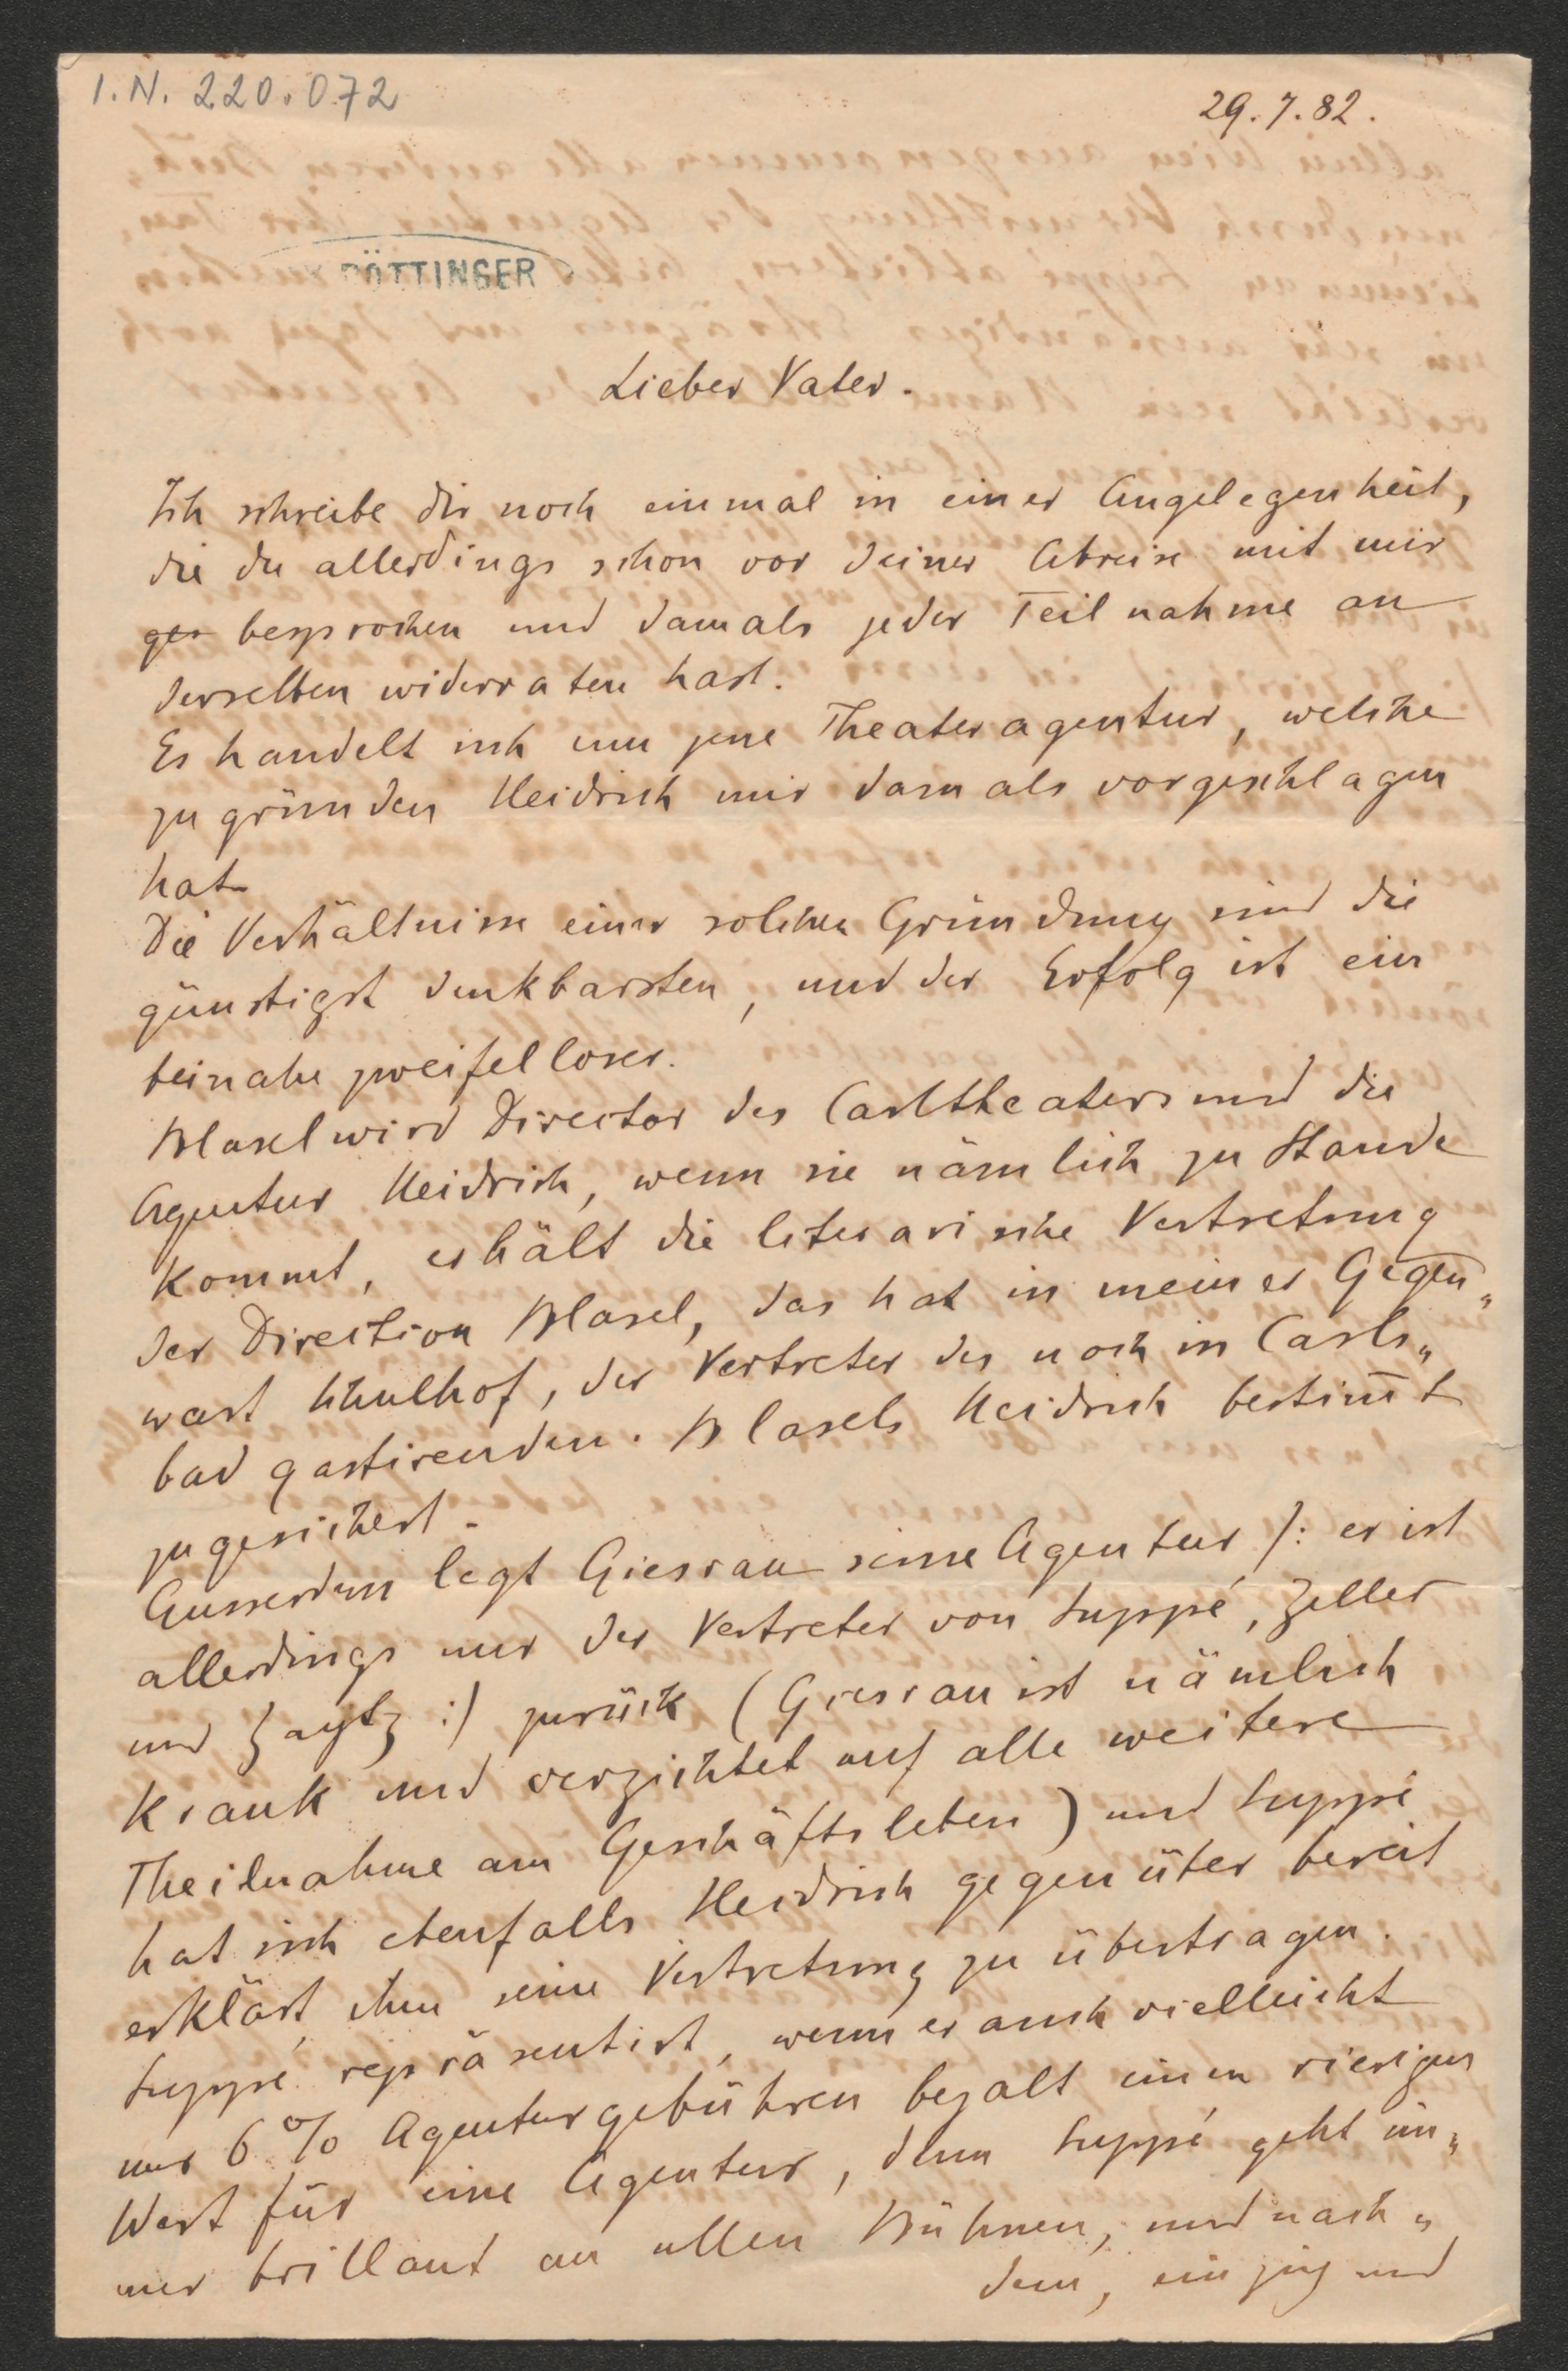 I.N. 220.072
29.7.82.
RÖTTINGER
Lieber Vater.
Ich schreibe dir noch einmal in einer Angelegenheit,
die du allerdings schon vor deiner Abreise mit mir
ges besprochen und damals jeder Teilnahme an
derselben widerraten hast.
Es handelt sich um jene Theateragentur, welche
zu gründen Heidrich mir damals vorgeschlagen
hat.
Die Verhältnisse einer solchen Gründung sind die
günstigst denkbarsten, und der Erfolg ist ein
beinahe zweifelloser.
Blasel wird Director des Carltheaters und die
Agentur Heidrich, wenn sie nämlich zu Stande
kommt, erhält die literarische Vertretung
der Direction Blasel, das hat in meiner Gegen„
wart Schulhof, der Vertreter des noch in Carls„
bad gastirenden Blasels Heidrich bestim̄t
zugesichert.
Ausserdem legt Giesrau seine Agentur /: er ist
allerdings nur der Vertreter von Suppé, Zeller
und Zaytz :/ zurück (Giesrau ist nämlich
krank und verzichtet auf alle weitere
Theilnahme am Geschäftsleben) und Suppé
hat sich ebenfalls Heidrich gegenüber bereit
erklärt, ihm seine Vertretung zu übertragen.
Suppé repräsentirt, wenn er auch vielleicht
nur 6% Agenturgebühren bezalt einen riesigen
Wert für eine Agentur, denn Suppé geht im„
mer brillant an allen Bühnen, und nach„
dem, einzig und